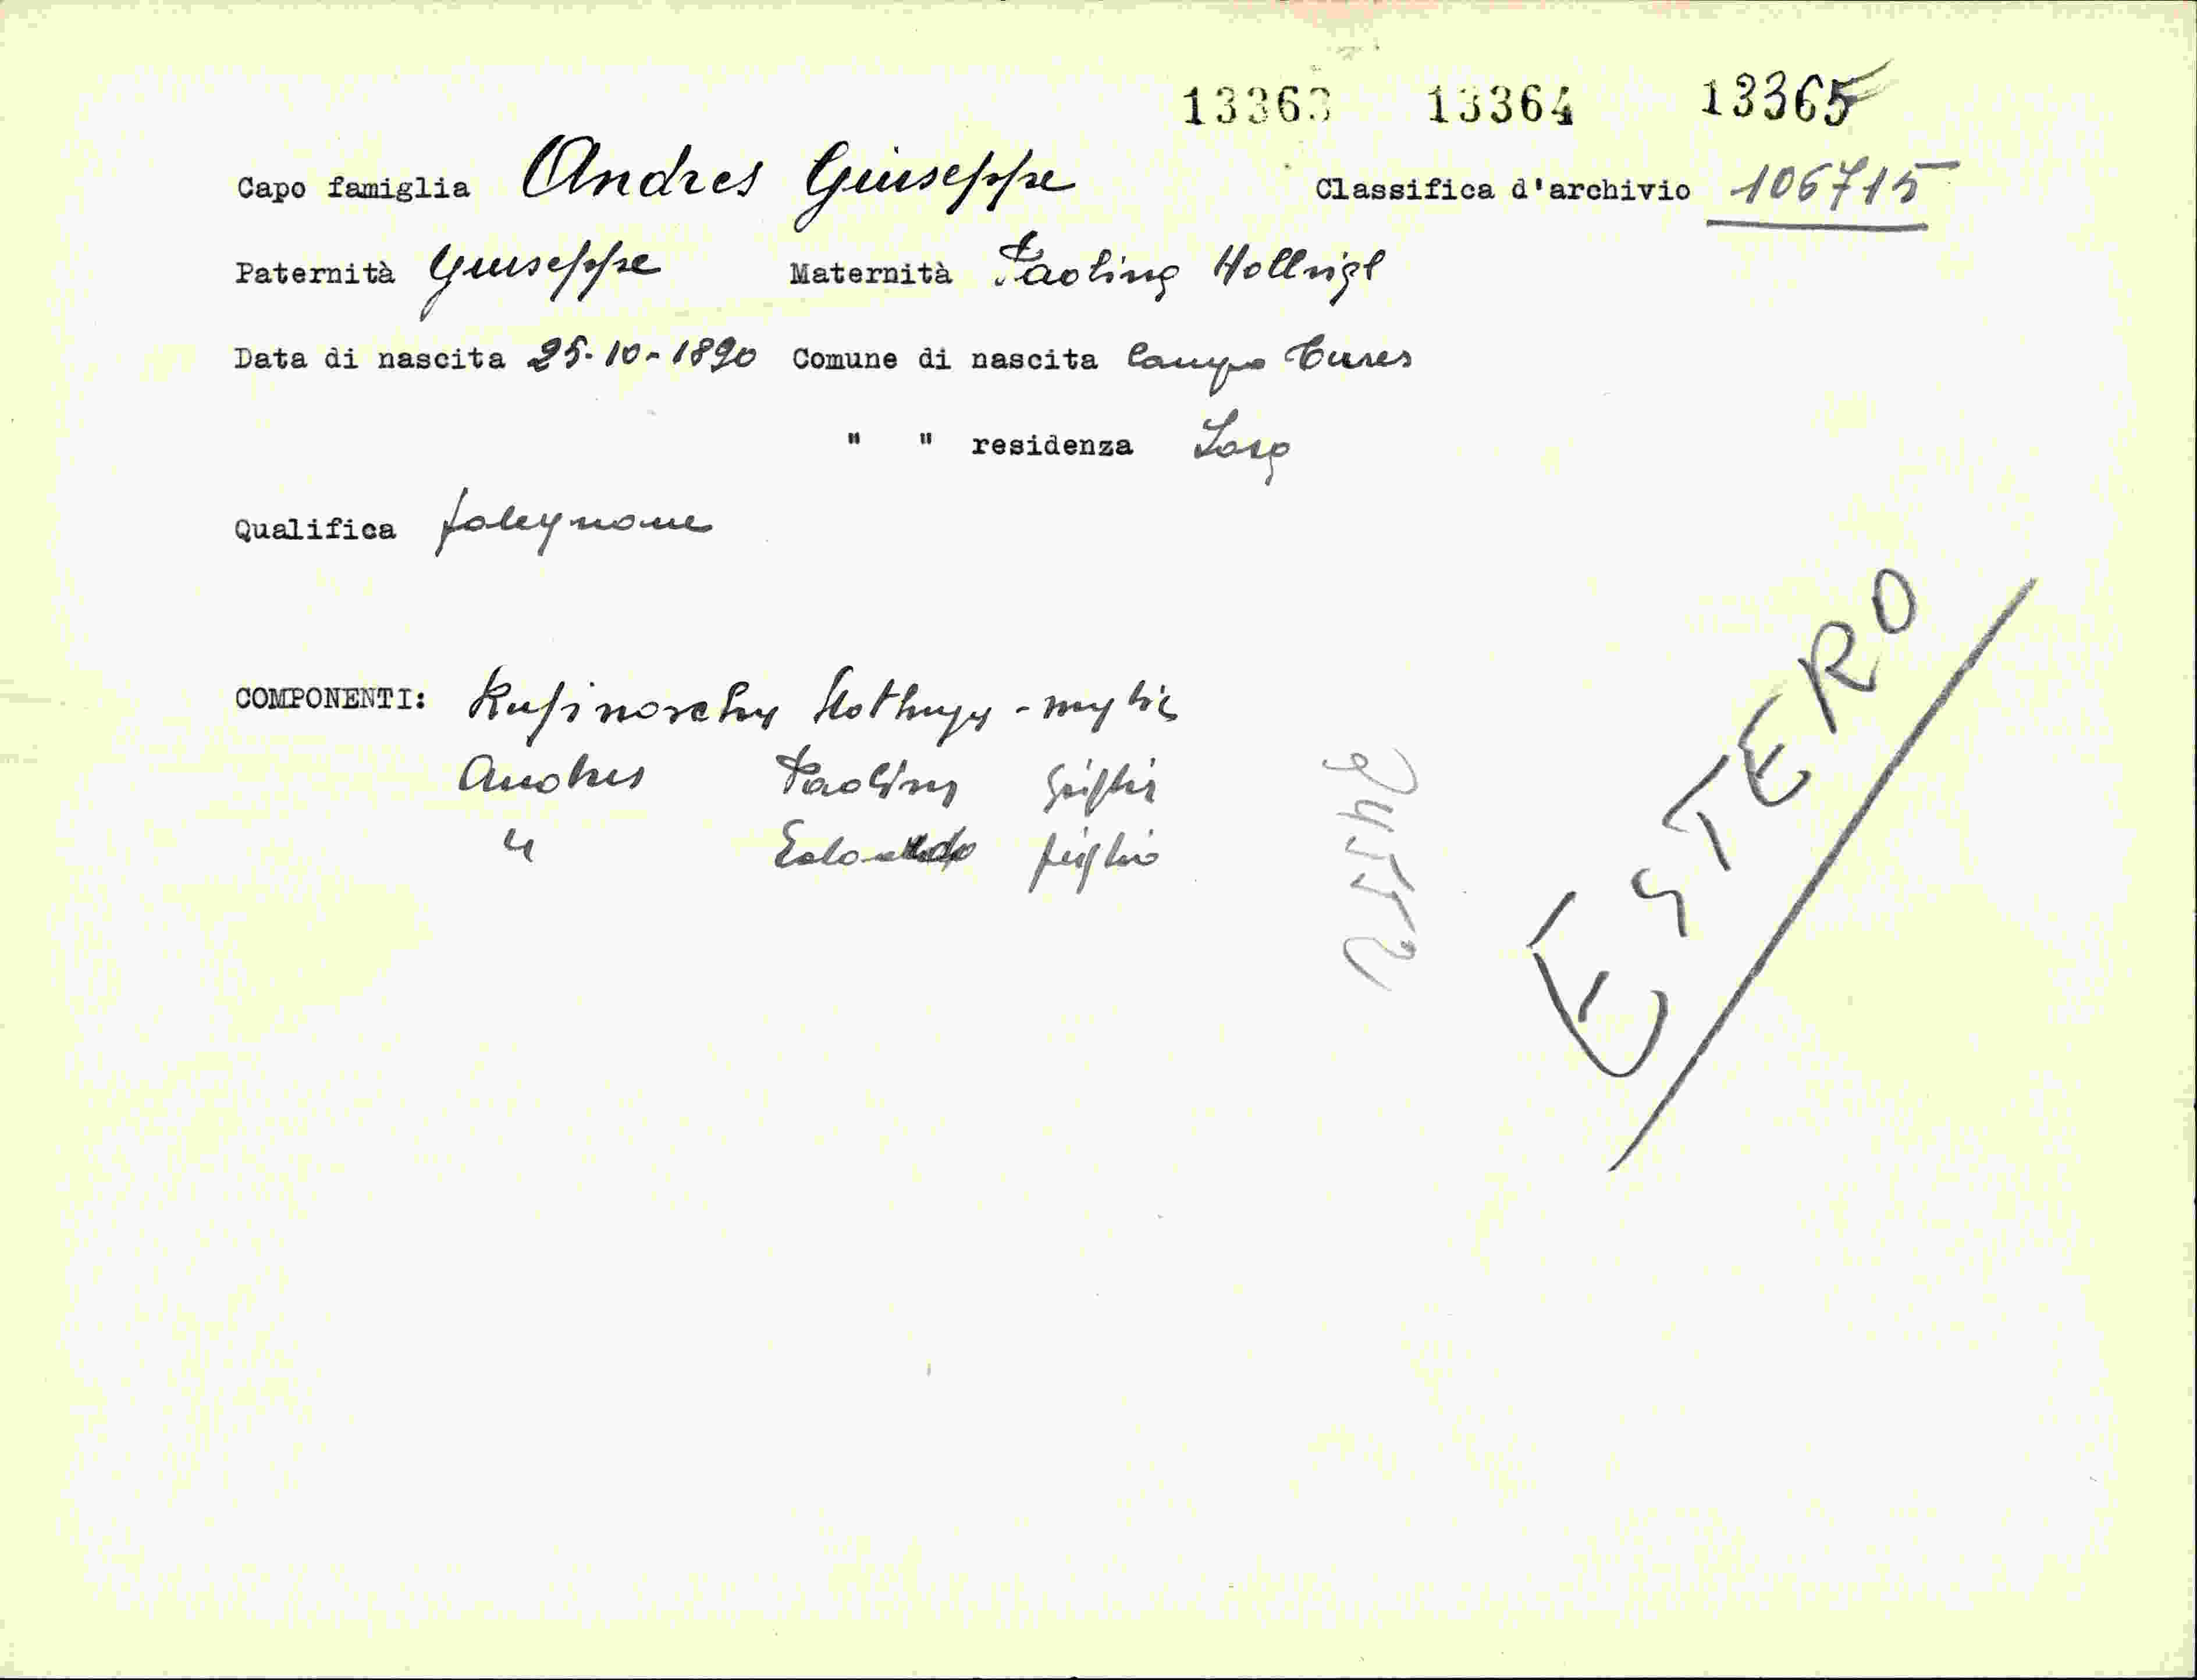 13363 13364 13365
Capo famiglia Andres Giuseppe Classifica d'archivio 106715
Paternità Giuseppe Maternità Paolina Hollrigl
Data di nascita 25-10-1890 Comune di nascita Campo Tures
" " residenza Lasa
Qualifica falegname
COMPONENTI: moglie
Andres Paolina figlia
" Edoardo figlio
ESTERO